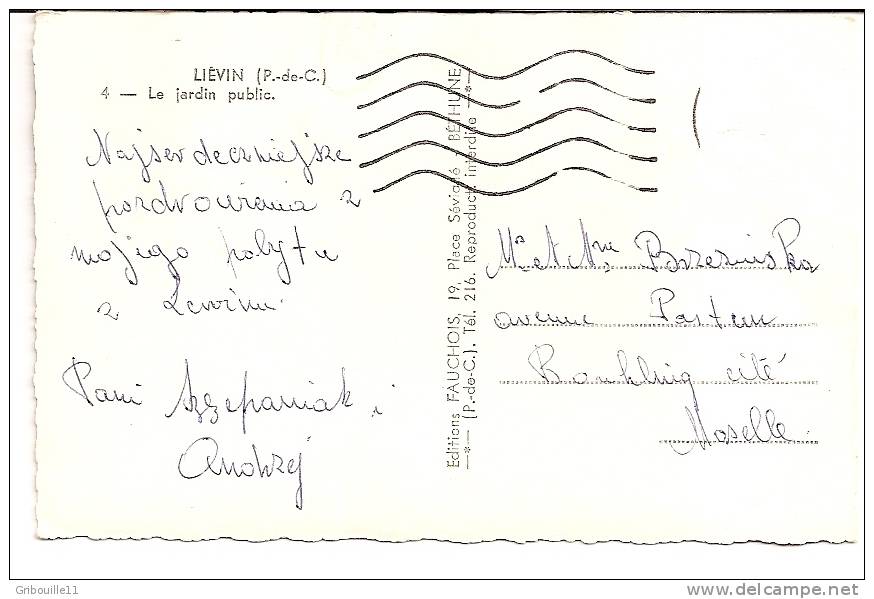 LIÉVIN (P.-de-C.)
4 — Le jardin public.
Najserdeczniejsze
pozdrowienia z
mojigo pobytu
z Levinu.
Pani Szczepaniak i
Andrzej
Editions FAUCHOIS, 19, Place Sévigné - BÉTHUNE
—*— (P.-de-C.). Tél. 216. Reproduct. interdite —*—
Mr et Mme Brzezinska
avenue Pasteur
cité
Moselle
Gribouille11
delcampe.net